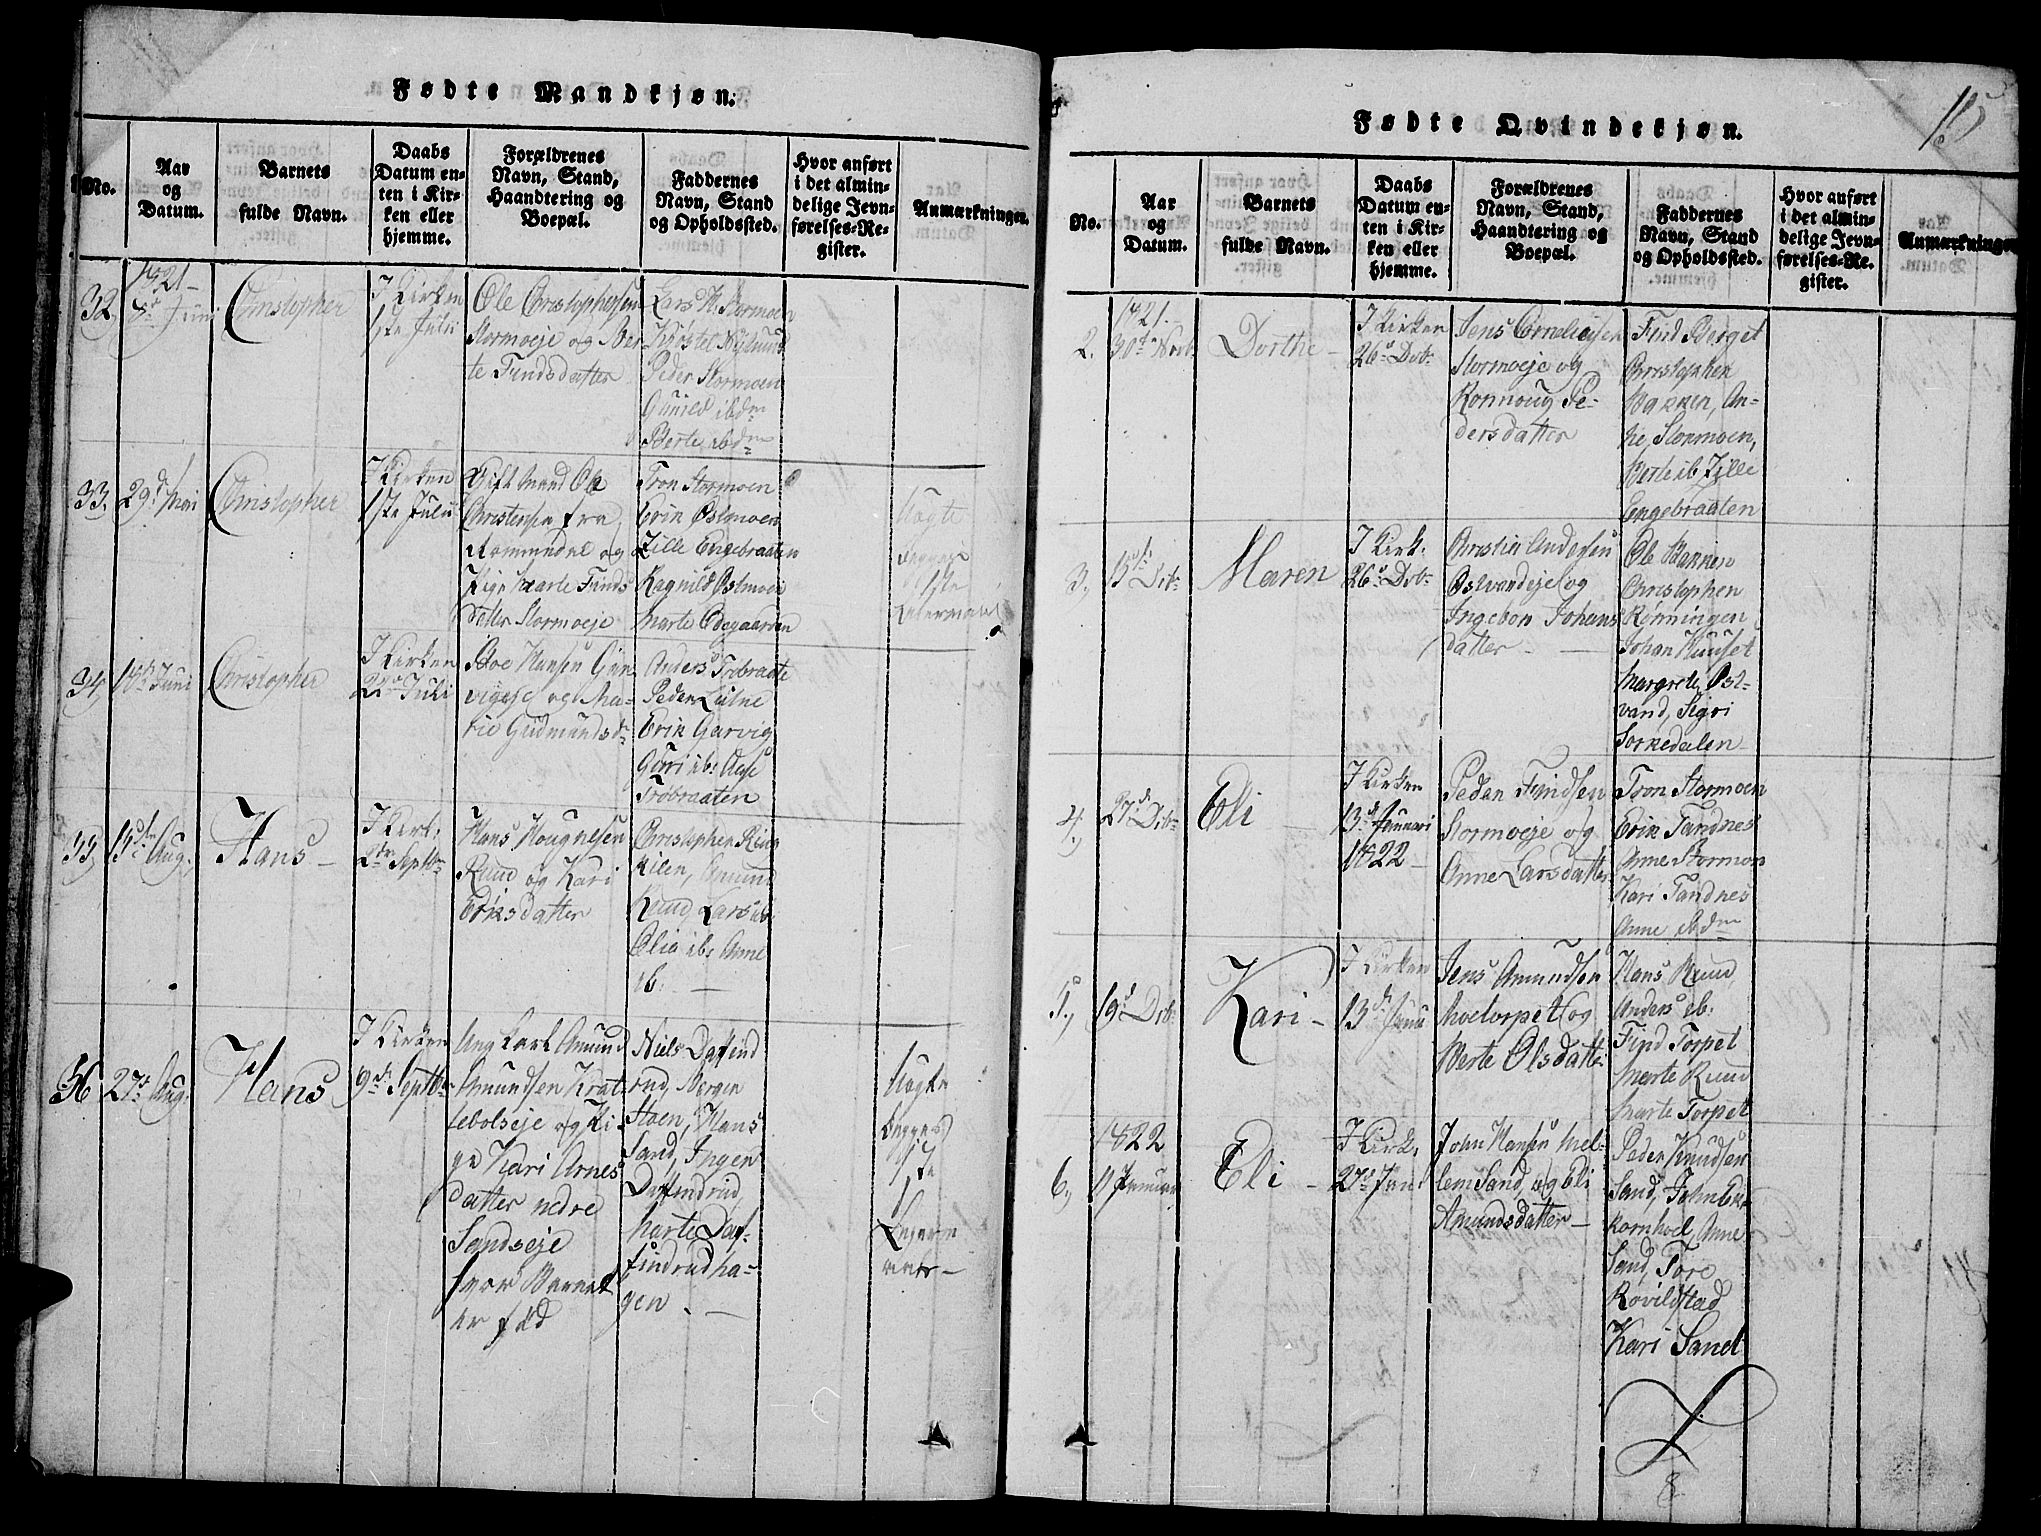 Fødte Mandkjøn.
No.
Aar
og
Datum.
Barnets
fulde Navn.
Daabs
Datum en-
ten i Kir-
ken eller
hjemme.
Forældrenes
Navn, Stand,
Haandtering og
Boepæl.
Faddernes
Navn, Stand
og Opholdssted.
Hvor anført
i det almin-
delige Jevn-
førelses-Re-
gister.
Anmærkninger.
32.
1821-
8de Juni
Christopher
I Kirken
1ste Julii
Ole Christophersen
Stormoeje og Ber
te Findsdatter
Lars H. Stormoen
Peder Stormoen
Gunild ibdm
Berte ibdm
33.
29d Mai
Christopher
I Kirken
1ste Julii
Gift Mand Ole
Christensen fra
Rommedal og
Pige Marte Finds
datter Stormoeje
Tron Stormoen
Erik Østmoen
Zille Engebraaten
Ragnild Østmoen
Marte Ødegaarden
Uægte
Begges
1ste
Leiermaal
34.
Juni
Christopher
I Kirken
22de Juli
Boe Hansen Gar
vigeje og Ma-
rie Gudmundsd.
Anders Trobraate
Peder Lulne
Erik Garvig
Gurri ib: Aase
Trobraaten
35.
15de Aug.
Hans -
I Kirk.
2den Septbr
Hans Haugnesen
Ruud og Kari
Eriksdatter
Christopher Ring
kilen, Amund
Ruud, Lars ib:
Olia ib: Anne
ib. -
36
27de Aug.
Hans
I Kirken
9de Septbr
Ung Karl Amund
Amundsen Krat
tebolseje og Pi-
ge Kari Arnes
datter nedre
Sandseje
hvor Barnet
er fød
Niels Daffind
rud, Berger
Moen, Hans
Sand, Inger
Daffindrud,
Marte Daf-
findrudha-
gen. -
Uægte
Begges
1ste
Leierm
Fødte Qvindekjøn.
No.
Aar
og
Datum.
Barnets
fulde Navn.
Daabs
Datum en-
ten i Kir-
ken eller
hjemme.
Forældrenes
Navn, Stand,
Haandtering og
Boepæl.
Faddernes
Navn, Stand
og Opholdssted.
Hvor anført
i det almin-
delige Jevn-
førelses-Re-
gister.
Anmærkninger
2.
1821.
30te Novb.
Dorthe -
I Kirken
26de Dcbr
Jens Cornelisen
Stormoeje og
Ronnoug Pe-
dersdatter
Find Berget
Christopher
Bakken, An-
ne Stormoen,
Berte ib Zille
Engebraaten
3.
15de Dcbr
Maren
I Kirk.
26de Dcbr
Christen Andersen
Østvandeje og
Ingebor Johans
datter -
Ole Bakken
Christopher
Rønningen
Johan Huuset
Margrete Øst-
vand, Sigri
Sorkedalen
4.
27de Dcbr
Eli
I Kirken
13de Januari
1822 -
Peder Findsen
Stormoeje og
Anne Larsdatter
Tron Stormoen
Erik Sandnes
Anne Stormoen
Kari Sandnes
Anne ibdm
5.
19de Dcbr
Kari -
I Kirken
13de Janu
Jens Amundsen
Moetorpet og
Berte Olsdattr
Hans Ruud
Anders ib:
Find Torpet
Marte Ruud
Marte Torpet
6.
1822
11 Januar
Eli -
I Kirk.
27de Jan
John Hansen Mel-
lem Sand, og Eli
Amundsdatter -
Peder Knudsen
Sand, John Ek
kornhoel, Anne
Sand, Tore
Røvildstad
Kari Sand
8